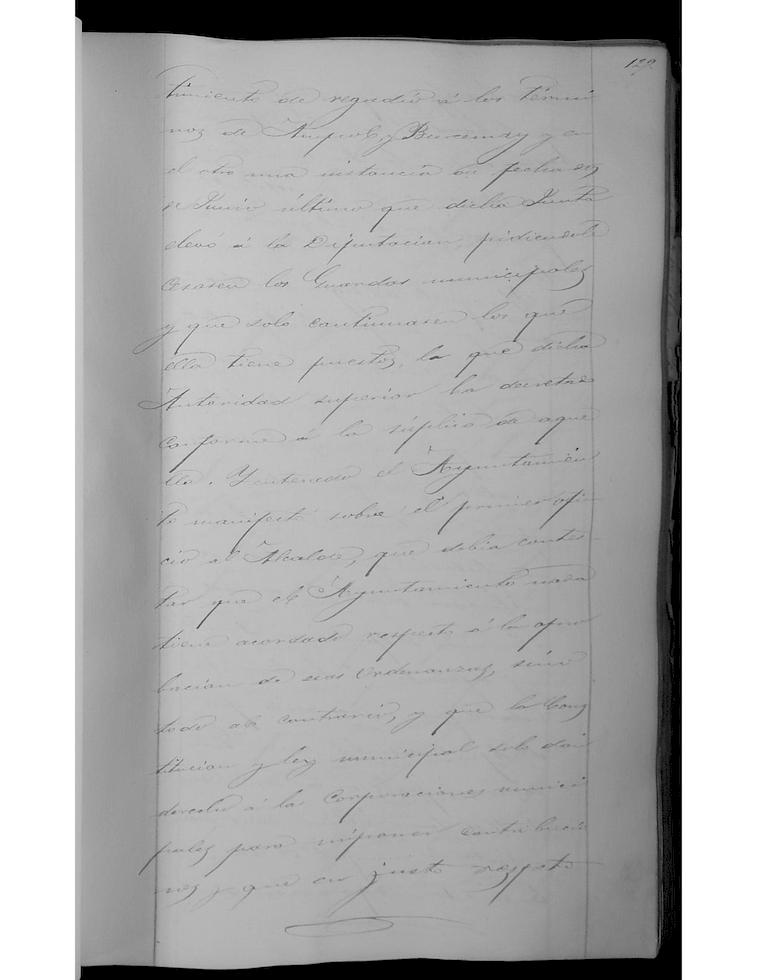 129.
timiento de regadio á los térmi
nos de Ampról, y Burcemay y en
el otro una instancia su fecha seis
de Junio último que dicha Junta
elevó á la Diputacion, pidiendole
cesasen los Guardas municipales
y que solo continuasen los que
ella tiene puestos, la que dicha
Autoridad superior ha decretado
conforme á la súplica de aque
lla. Y enterado el Ayuntamien
to manifestó sobre el primer ofi-
cio al Alcalde, que debia contes-
tar que el Ayuntamiento nada
tiene acordado respecto á la apro
bacion de esas Ordenanzas, sino
todo al contrario, y que la Cons
titucion y ley municipal solo dan
derecho á las Corporaciones munici
pales para imponer contribucio
nes y que en justo respeto